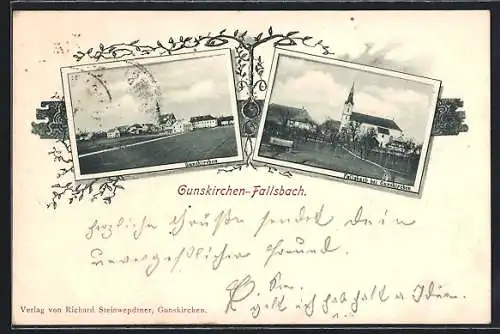 Gunskirchen
Fallsbach bei Gunskirchen
Gunskirchen-Fallsbach.
herzliche Grüße sendet Dein
unvergeßlicher Freund.
P. S.
gelt ich hab halt a Idee.
Verlag von Richard Steinwendtner, Gunskirchen.